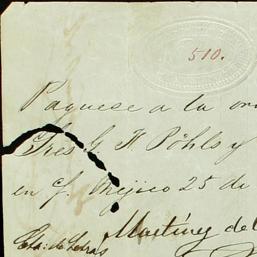 510.
Páguese a la or
Sres G. H. Pöhls y
en f. Mejico 25 de
Martínez del
Cta: de Letras